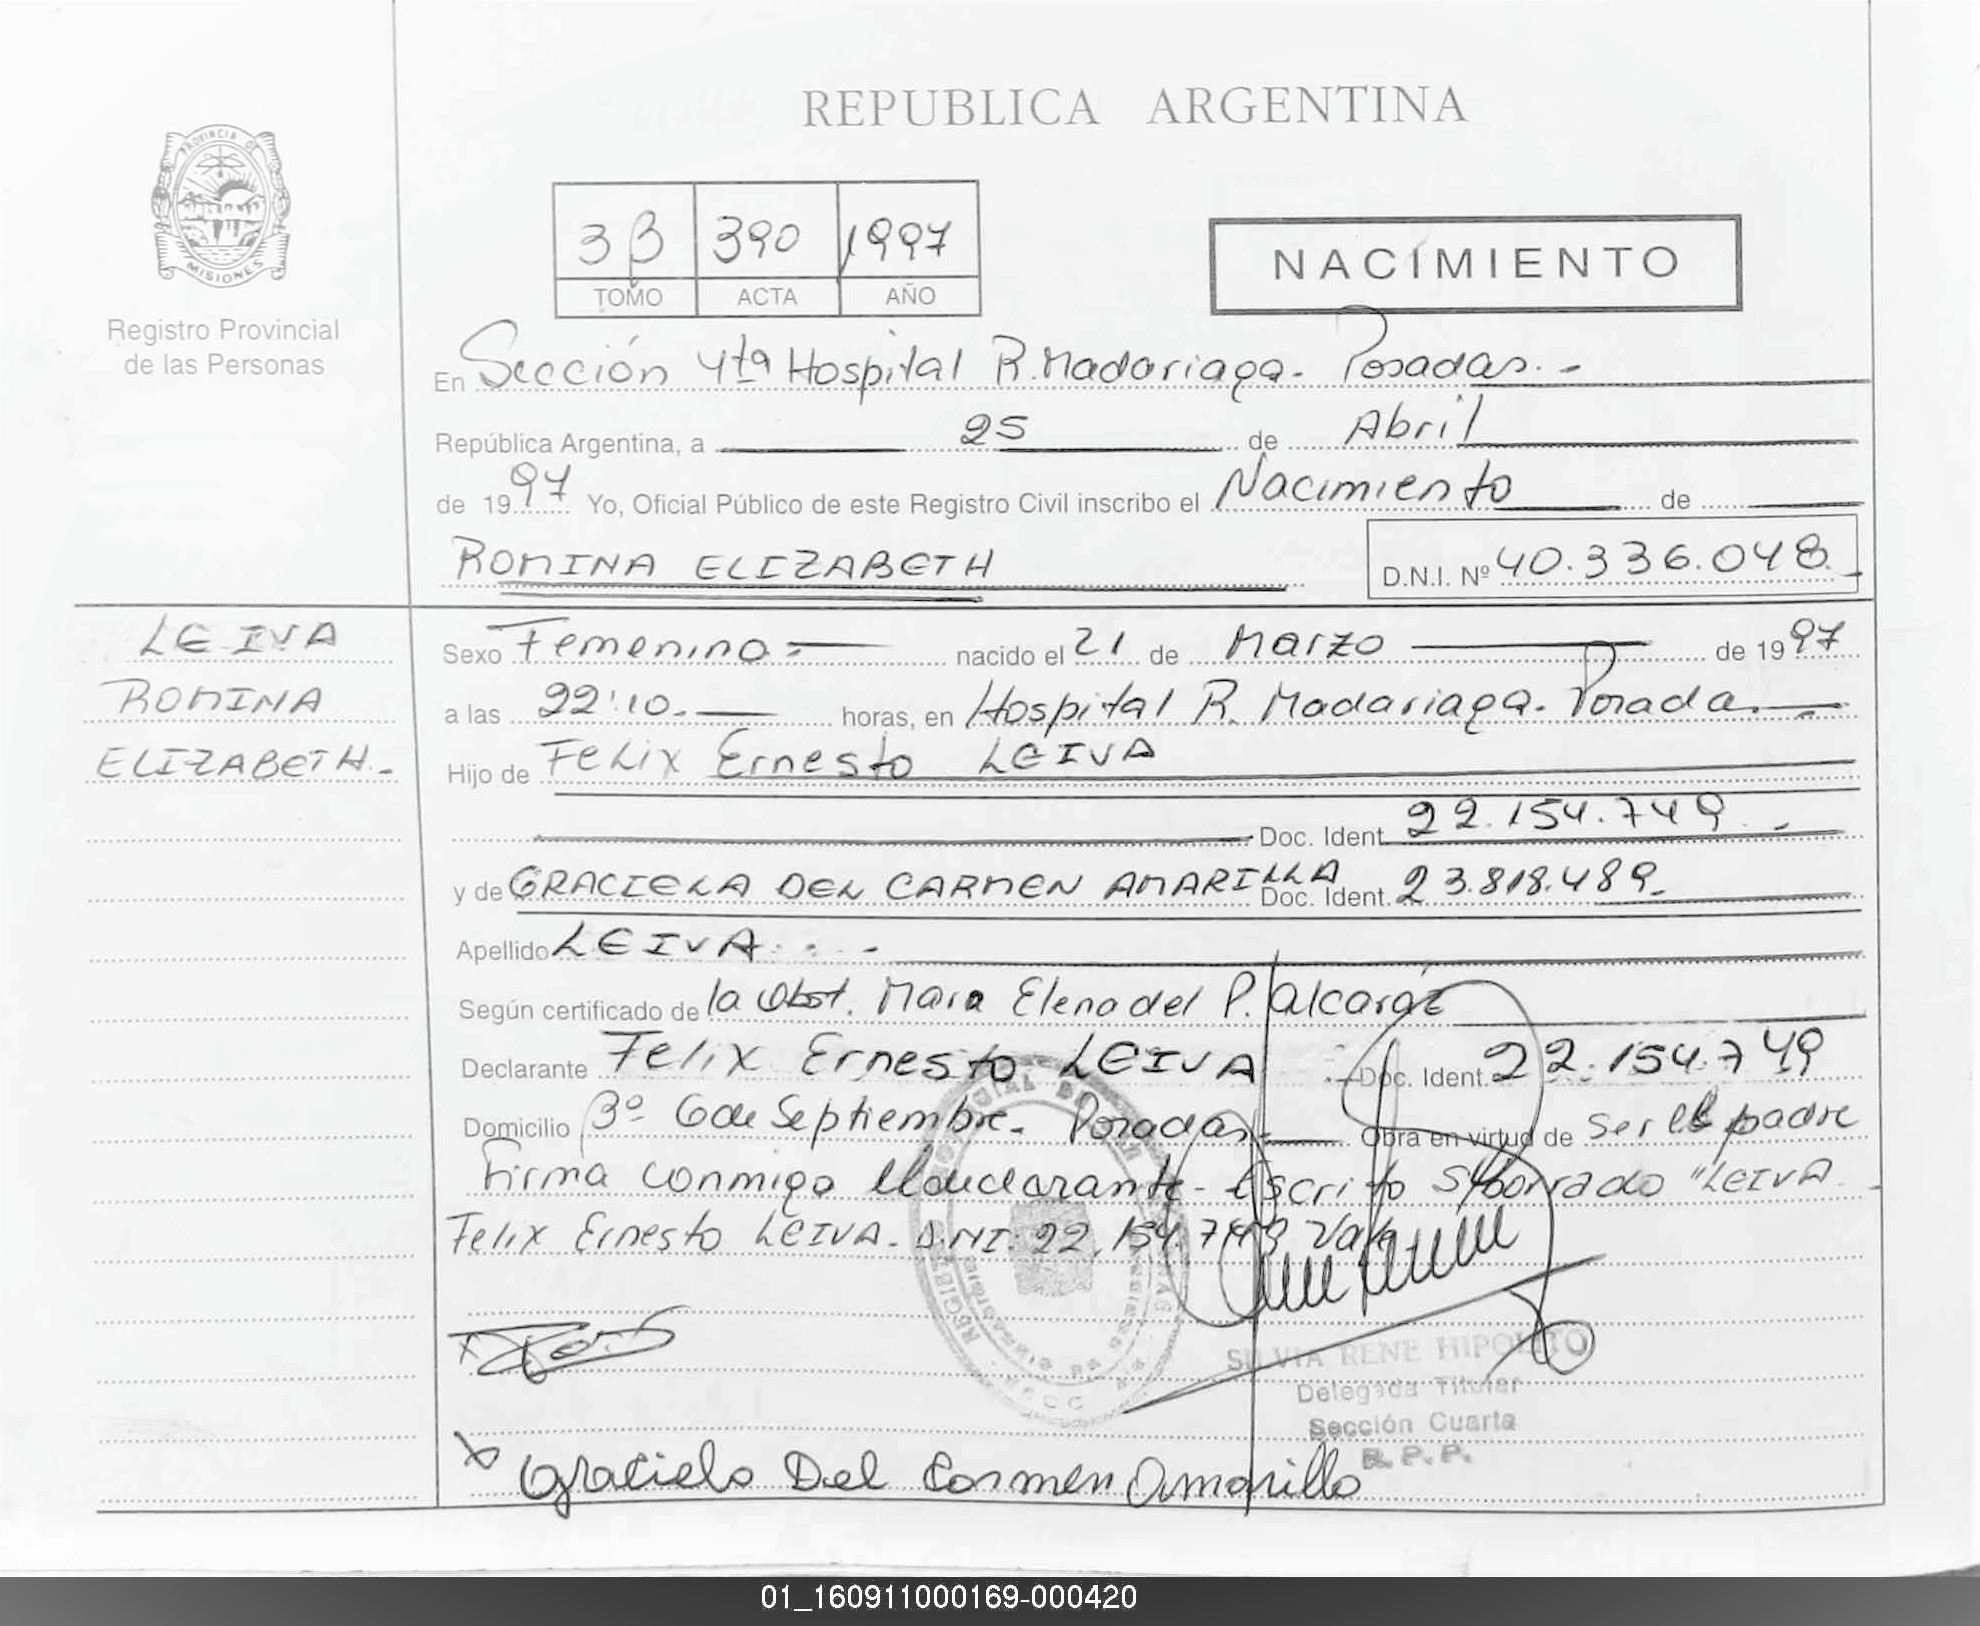 REPUBLICA ARGENTINA
PROVINCIA DE
MISIONES
Registro Provincial
de las Personas
3B 390 1997
TOMO ACTA AÑO
NACIMIENTO
En Sección 4ta Hospital R. Madariaga - Posadas. -
República Argentina, a 25 de Abril
de 1997 Yo, Oficial Público de este Registro Civil inscribo el Nacimiento de
ROMINA ELIZABETH D.N.I. Nº 40.336.048
LEIVA
ROMINA
ELIZABETH. -
Sexo Femenino nacido el 21 de Marzo de 1997
a las 22:10. horas, en Hospital R. Madariaga - Posada.
Hijo de Felix Ernesto LEIVA
Doc. Ident. 22.154.749 -
y de GRACIELA DEL CARMEN AMARILLA Doc. Ident. 23.818.489.
Apellido LEIVA
Según certificado de la Obst. Maria Elena del P. Alcaraz
Declarante Felix Ernesto LEIVA Doc. Ident. 22.154.749
Domicilio Bº 6 de Septiembre - Posadas Obra en virtud de ser el padre
Firma conmigo el declarante - Escrito s/borrado "LEIVA
Felix Ernesto LEIVA - D.NI. 22.154.749 Vale
SILVIA RENE HIPOLITO
Delegada Titular
Sección Cuarta
R. P. P.
x
x Graciela Del Carmen Amarilla
01_160911000169-000420